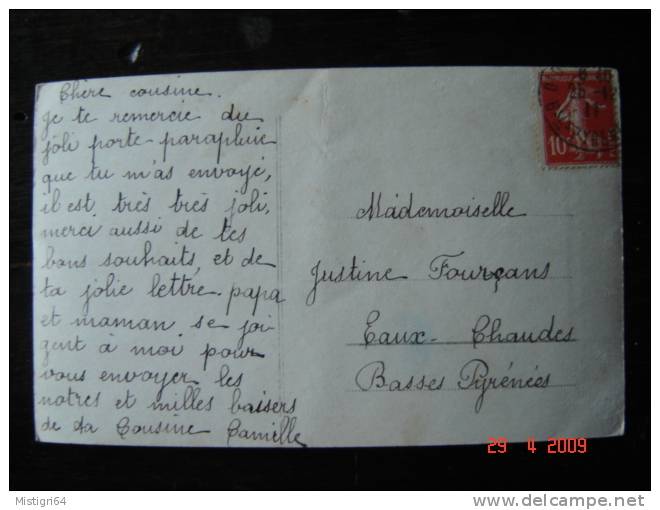 Chère cousine.
je te remercie du
joli porte-parapluie
que tu m'as envoyé,
il est très très joli,
merci aussi de tes
bons souhaits, et de
ta jolie lettre. papa
et maman se joi
gent à moi pour
vous envoyer les
notres et milles baisers
de ta Cousine Camille
Mademoiselle
Justine Fourçans
Eaux-Chaudes
Basses Pyrénées
10
29 4 2009
Mistigri64
delcampe.net